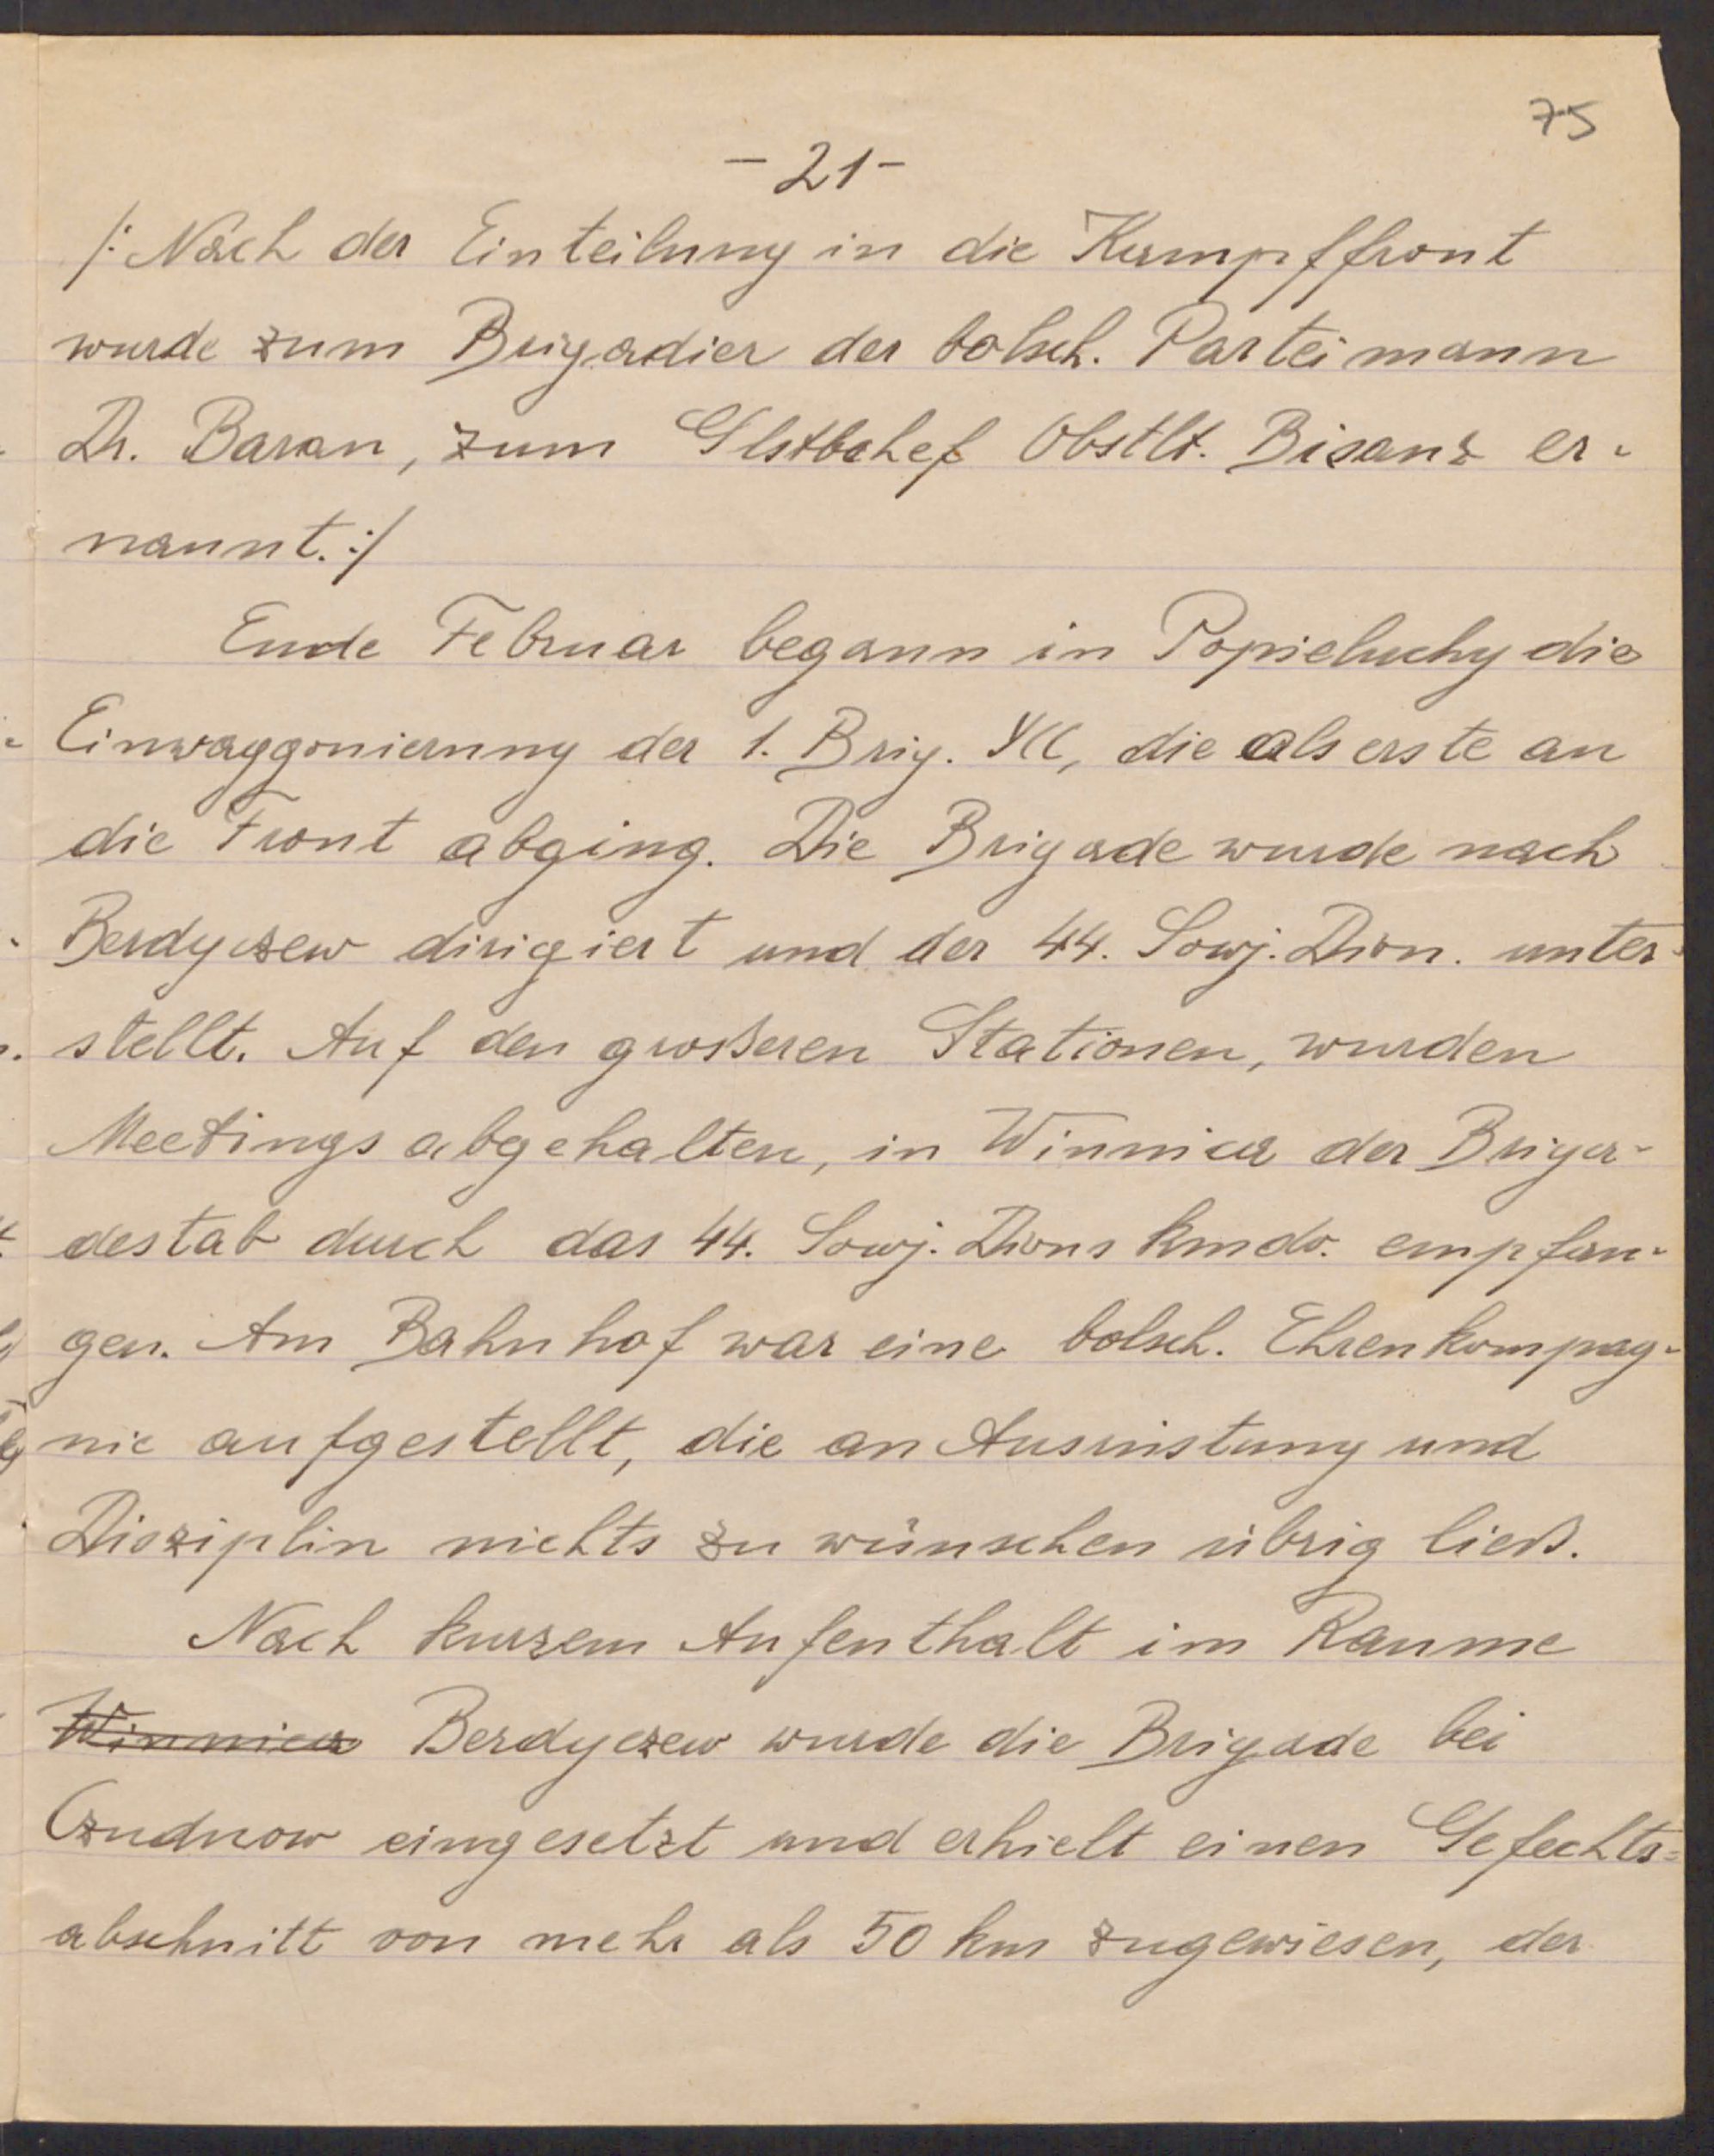 75
-21-
/: Nach der Einteilung in die Kampffront
wurde zum Brigadier der bolsch. Parteimann
Dr. Baran, zum Glstbchef Obstlt. Bisanz er-
nannt. :/
Ende Februar begann in Popieluchy die
Einwaggonierung der 1. Brig. УСС, die als erste an
die Front abging. Die Brigade wurde nach
Berdyczew dirigiert und der 44. Sowj. Dion. unter-
stellt. Auf den grosseren Stationen, wurden
Meetings abgehalten, in Winnica der Briga-
destab durch das 44. Sowj. Dions kmdo. empfan-
gen. Am Bahnhof war eine bolsch. Ehrenkompag-
nie aufgestellt, die an Ausrüstung und
Disziplin nichts zu wünschen übrig liess.
Nach kurzem Aufenthalt im Raume
Winnica Berdyczew wurde die Brigade bei
Czudnow eingesetzt und erhielt einen Gefechts=
abschnitt von mehr als 50 km zugewiesen, der